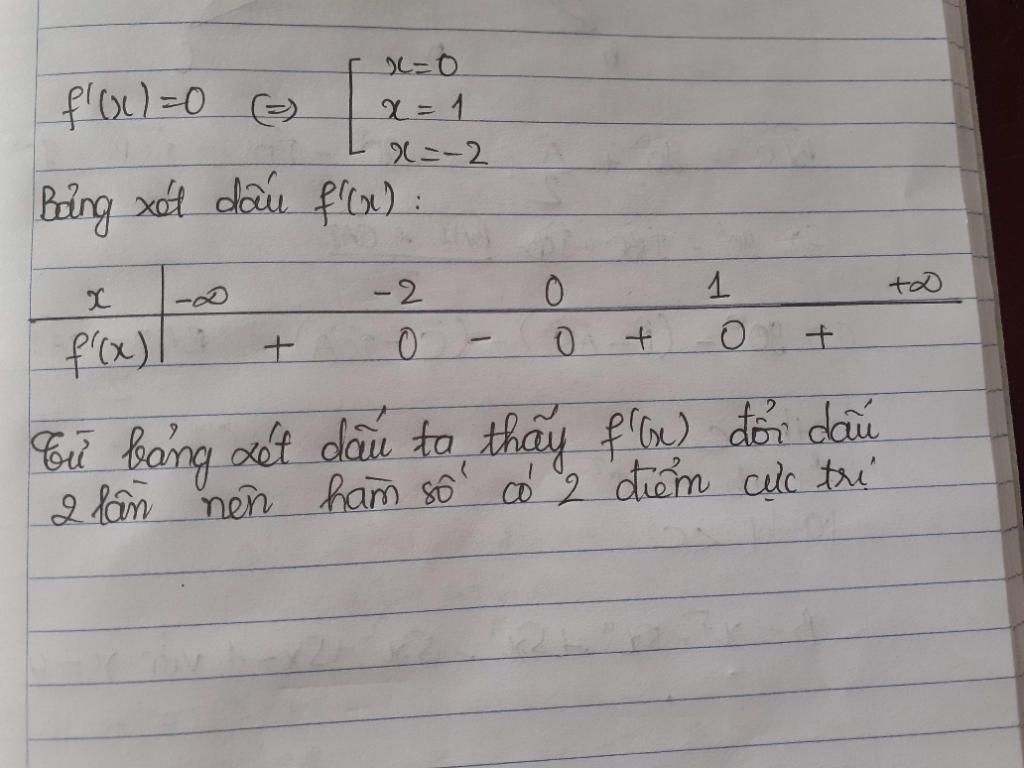 f'(x) = 0 (=) [ x = 0
x = 1
x = -2
Bảng xét dấu f'(x) :
x | -∞ -2 0 1 +∞
f'(x) | + 0 - 0 + 0 +
Từ bảng xét dấu ta thấy f'(x) đổi dấu
2 lần nên hàm số có 2 điểm cực trị